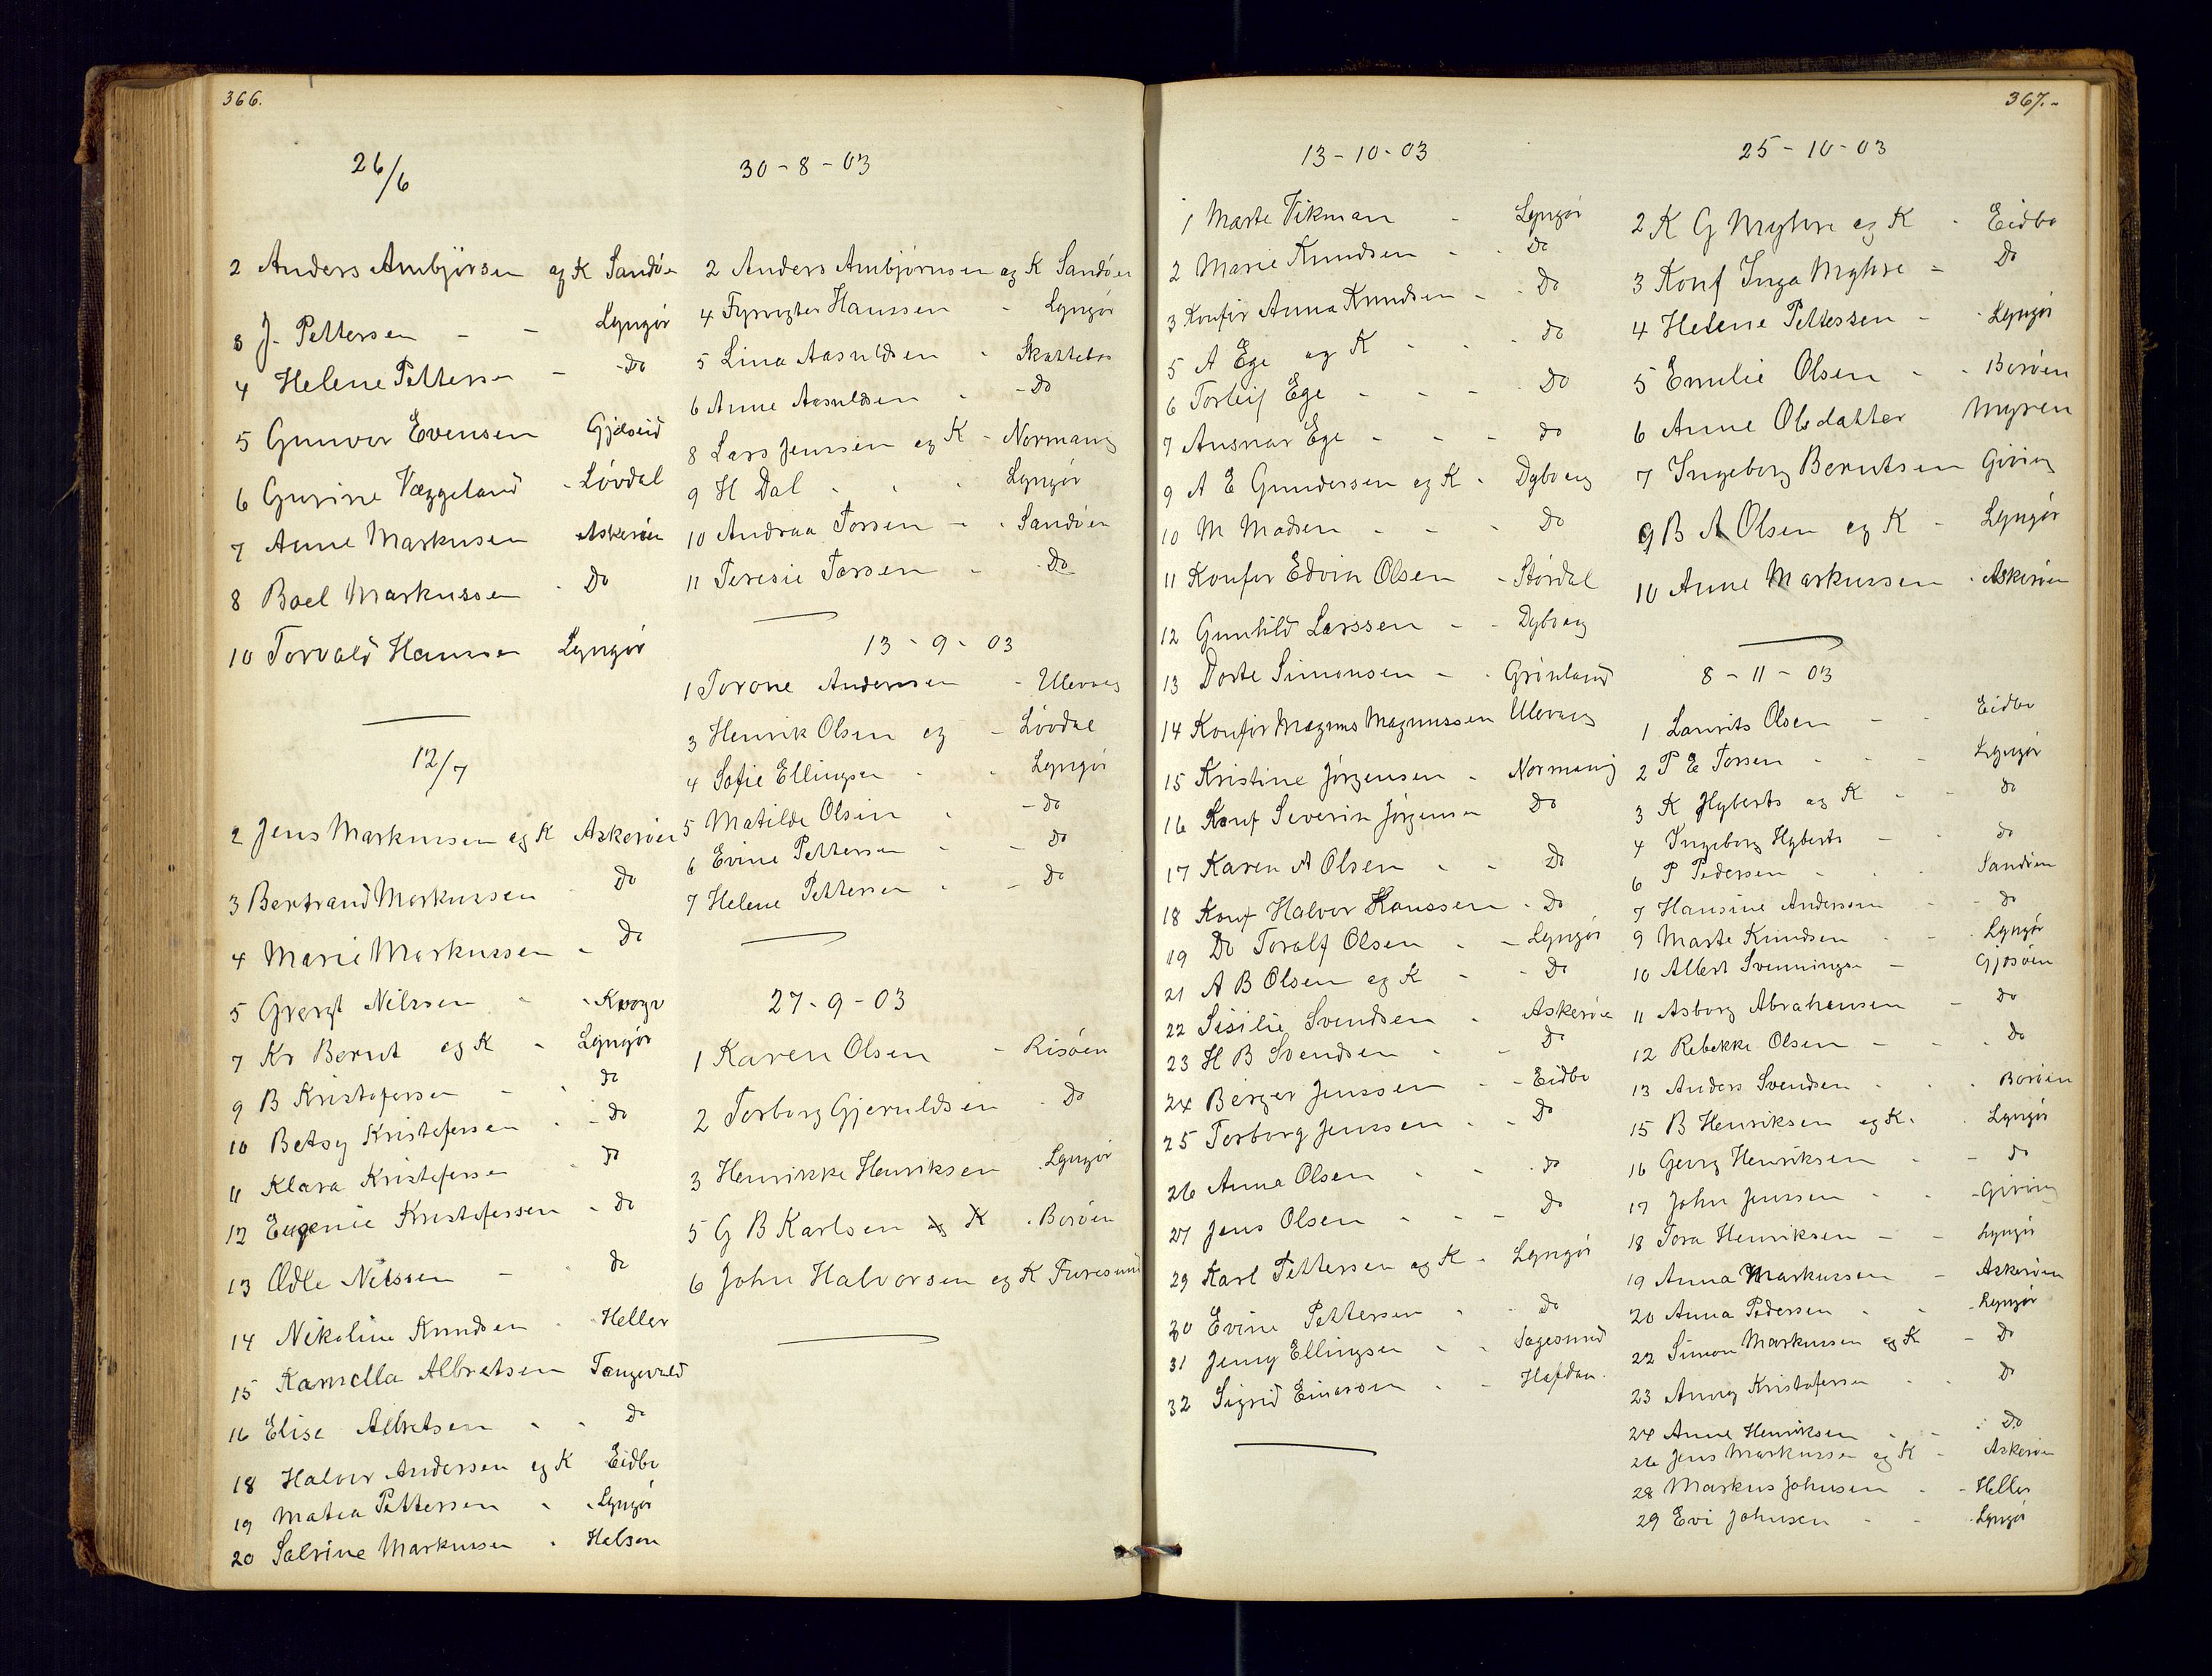 366.
26/6
2 Anders Ambjørsen og K Sandøen
3 J. Pettersen - - Lyngør
4 Helene Pettersen - - Do
5 Gunvor Evensen Gjæseid
6 Gurine Væggeland - Løvdal
7 Anne Markusen Askerøen
8 Boel Markussen - Do
10 Torvald Hanssen Lyngør
12/7
2 Jens Markussen og K Askerøen
3 Bertrand Markussen - Do
4 Marie Markussen - Do
5 Nilssen -
7 Kr Bernt og K - Lyngør
9 B Kristofersen - - do
10 Betsy Kristofersen - - do
11 Klara Kristofersen - do
12 Eugenie Kristofersen - do
13 Ædle Nilssen - - do
14 Nikoline Knudsen - Heller
15 Kamella Albretsen Tangevald
16 Elise Albretsen - - do
18 Halvor Andersen og K Eidbo
19 Matea Pettersen - - Lyngør
20 Salvine Markussen - Holsen
30-8-03
2 Anders Ambjørnsen og K Sandøen
4 Fyrvogter Hanssen - Lyngør
5 Lina Aasuldsen - Skattebo
6 Anne Aasuldsen - - Do
8 Lars Jenssen og K - Normanvig
9 H Dal - - - Lyngør
10 Andrea Torsen - - Sandøen
11 Teresie Torsen - Do
13-9-03
1 Torone Andersen - Ulevaag
3 Henrik Olsen og - Løvdal
4 Sofie Ellingsen - - Lyngør
5 Matilde Olsen - - do
6 Evine Pettersen - - do
7 Helene Pettersen - - do
27-9-03
1 Karen Olsen - Risøen
2 Torborg Gjeruldsen - Do
3 Henrikke Henriksen - Lyngør
5 G B Karlsen og K - Borøen
6 John Halvorsen og K Furesund
367.-
13-10-03
1 Marte Vikman - Lyngør
2 Marie Knudsen - - do
3 Konfir Anna Knudsen - - Do
5 A Ege og K - - - do
6 Torleif Ege - - - Do
7 Ansnar Ege - - - do
9 A E Gundersen og K - Dybvaag
10 M Madsen - - - Do
11 Konfir Edvin Olsen - Størdal
12 Gunhild Larssen - - Dybvaag
13 Dorte Simonsen - - Grønland
14 Konfir Magnus Magnussen Ulevaag
15 Kristine Jørgensen - Normanvig
16 Konf Severin Jørgensen Do
17 Karen A Olsen - - Do
18 Konf Halvor Hanssen - Do
19 Do Toralf Olsen - - Lyngør
21 A B Olsen og K - - Do
22 Sisilie Svendsen - Askerøen
23 H B Svendsen - - Do
24 Berger Jenssen - - Eidbo
25 Torborg Jenssen - - Do
26 Anna Olsen - - - do
27 Jens Olsen - - - Do
29 Karl Pettersen og K - Lyngør
30 Evine Pettersen - - Do
31 Jenny Ellingsen - - Sagesund
32 Sigrid Einarsen - - Hafdan
25-10-03
2 K G Myhre og K - Eidbo
3 Konf Inga Myhre - Do
4 Helene Pettersen - - Lyngør
5 Emilie Olsen - - Borøen
6 Anne Olsdatter Myren
7 Ingeborg Berntsen Giving
9 B A Olsen og K - Lyngør
10 Anne Markussen - Askerøen
8-11-03
1 Laurits Olsen - - Eidbo
2 P E Torsen - - - Lyngør
3 K Hyberts og K - - do
4 Ingeborg Hyberts - - do
6 P Pedersen - - - Sandøen
7 Hansine Andersen - - do
9 Marte Knudsen - - Lyngør
10 Albert Svenningsen - Gjøsøen
11 Asborg Abrahamsen - Do
12 Rebekke Olsen - - - Do
13 Anders Svendsen - - - Borøen
15 B Henriksen og K - - Lyngør
16 Georg Henriksen - - do
17 John Jenssen - - - Giving
18 Tora Henriksen - - Lyngør
19 Anna Markussen - Askerøen
20 Anna Pedersen - - - Lyngør
22 Simon Markussen og K - Do
23 Anny Kristofersen - - Do
24 Anne Henriksen - - - Do
26 Jens Markussen og K - Askerøen
28 Markus Johnsen - - Heller
29 Evi Johnsen - - - Lyngør